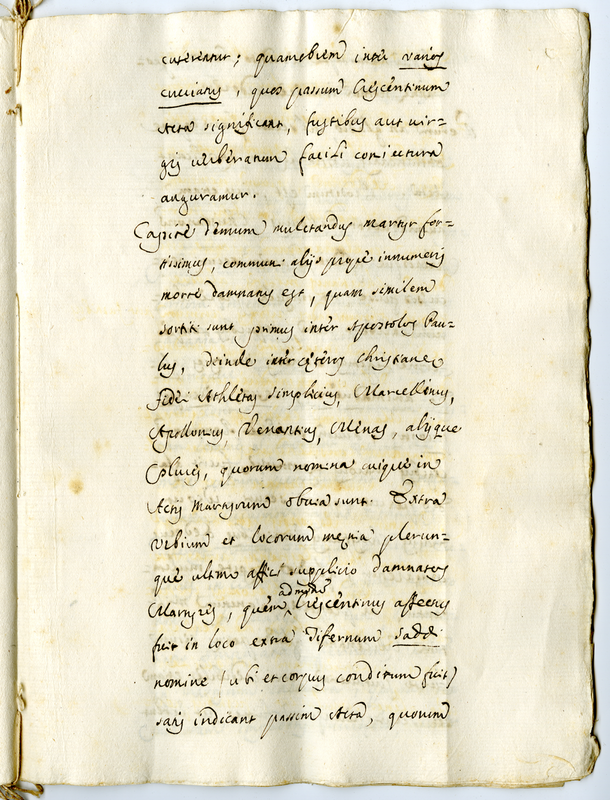 cuterentur; quamobrem inter varios
cruciatus, quos passum Crescentinum
Acta significant, fustibus aut vir=
gis verberatum facili coniectura
auguramur.
Capite demum mulctandus martyr for=
tissimus, communi alijs propè innumeris
morte damnatus est, quam similem
sortiti sunt primus inter Apostolos Pau=
lus, deinde inter cęteros christianę
fidei Athletas simplicius, Marcellinus,
Apollonius, Venantius, Menas, alijque
plures, quorum nomina cuique in
Actis martyrum obvia sunt. Extra
urbium et locorum męnia plerun=
que ultimo affici supplicio damnatos
Martyres, quem
admodum
Crescentinus affectus
fuit in loco extra Tifernum saddi
nomine (ubi et corpus conditum fuit)
satis indicant passim Acta, quorum